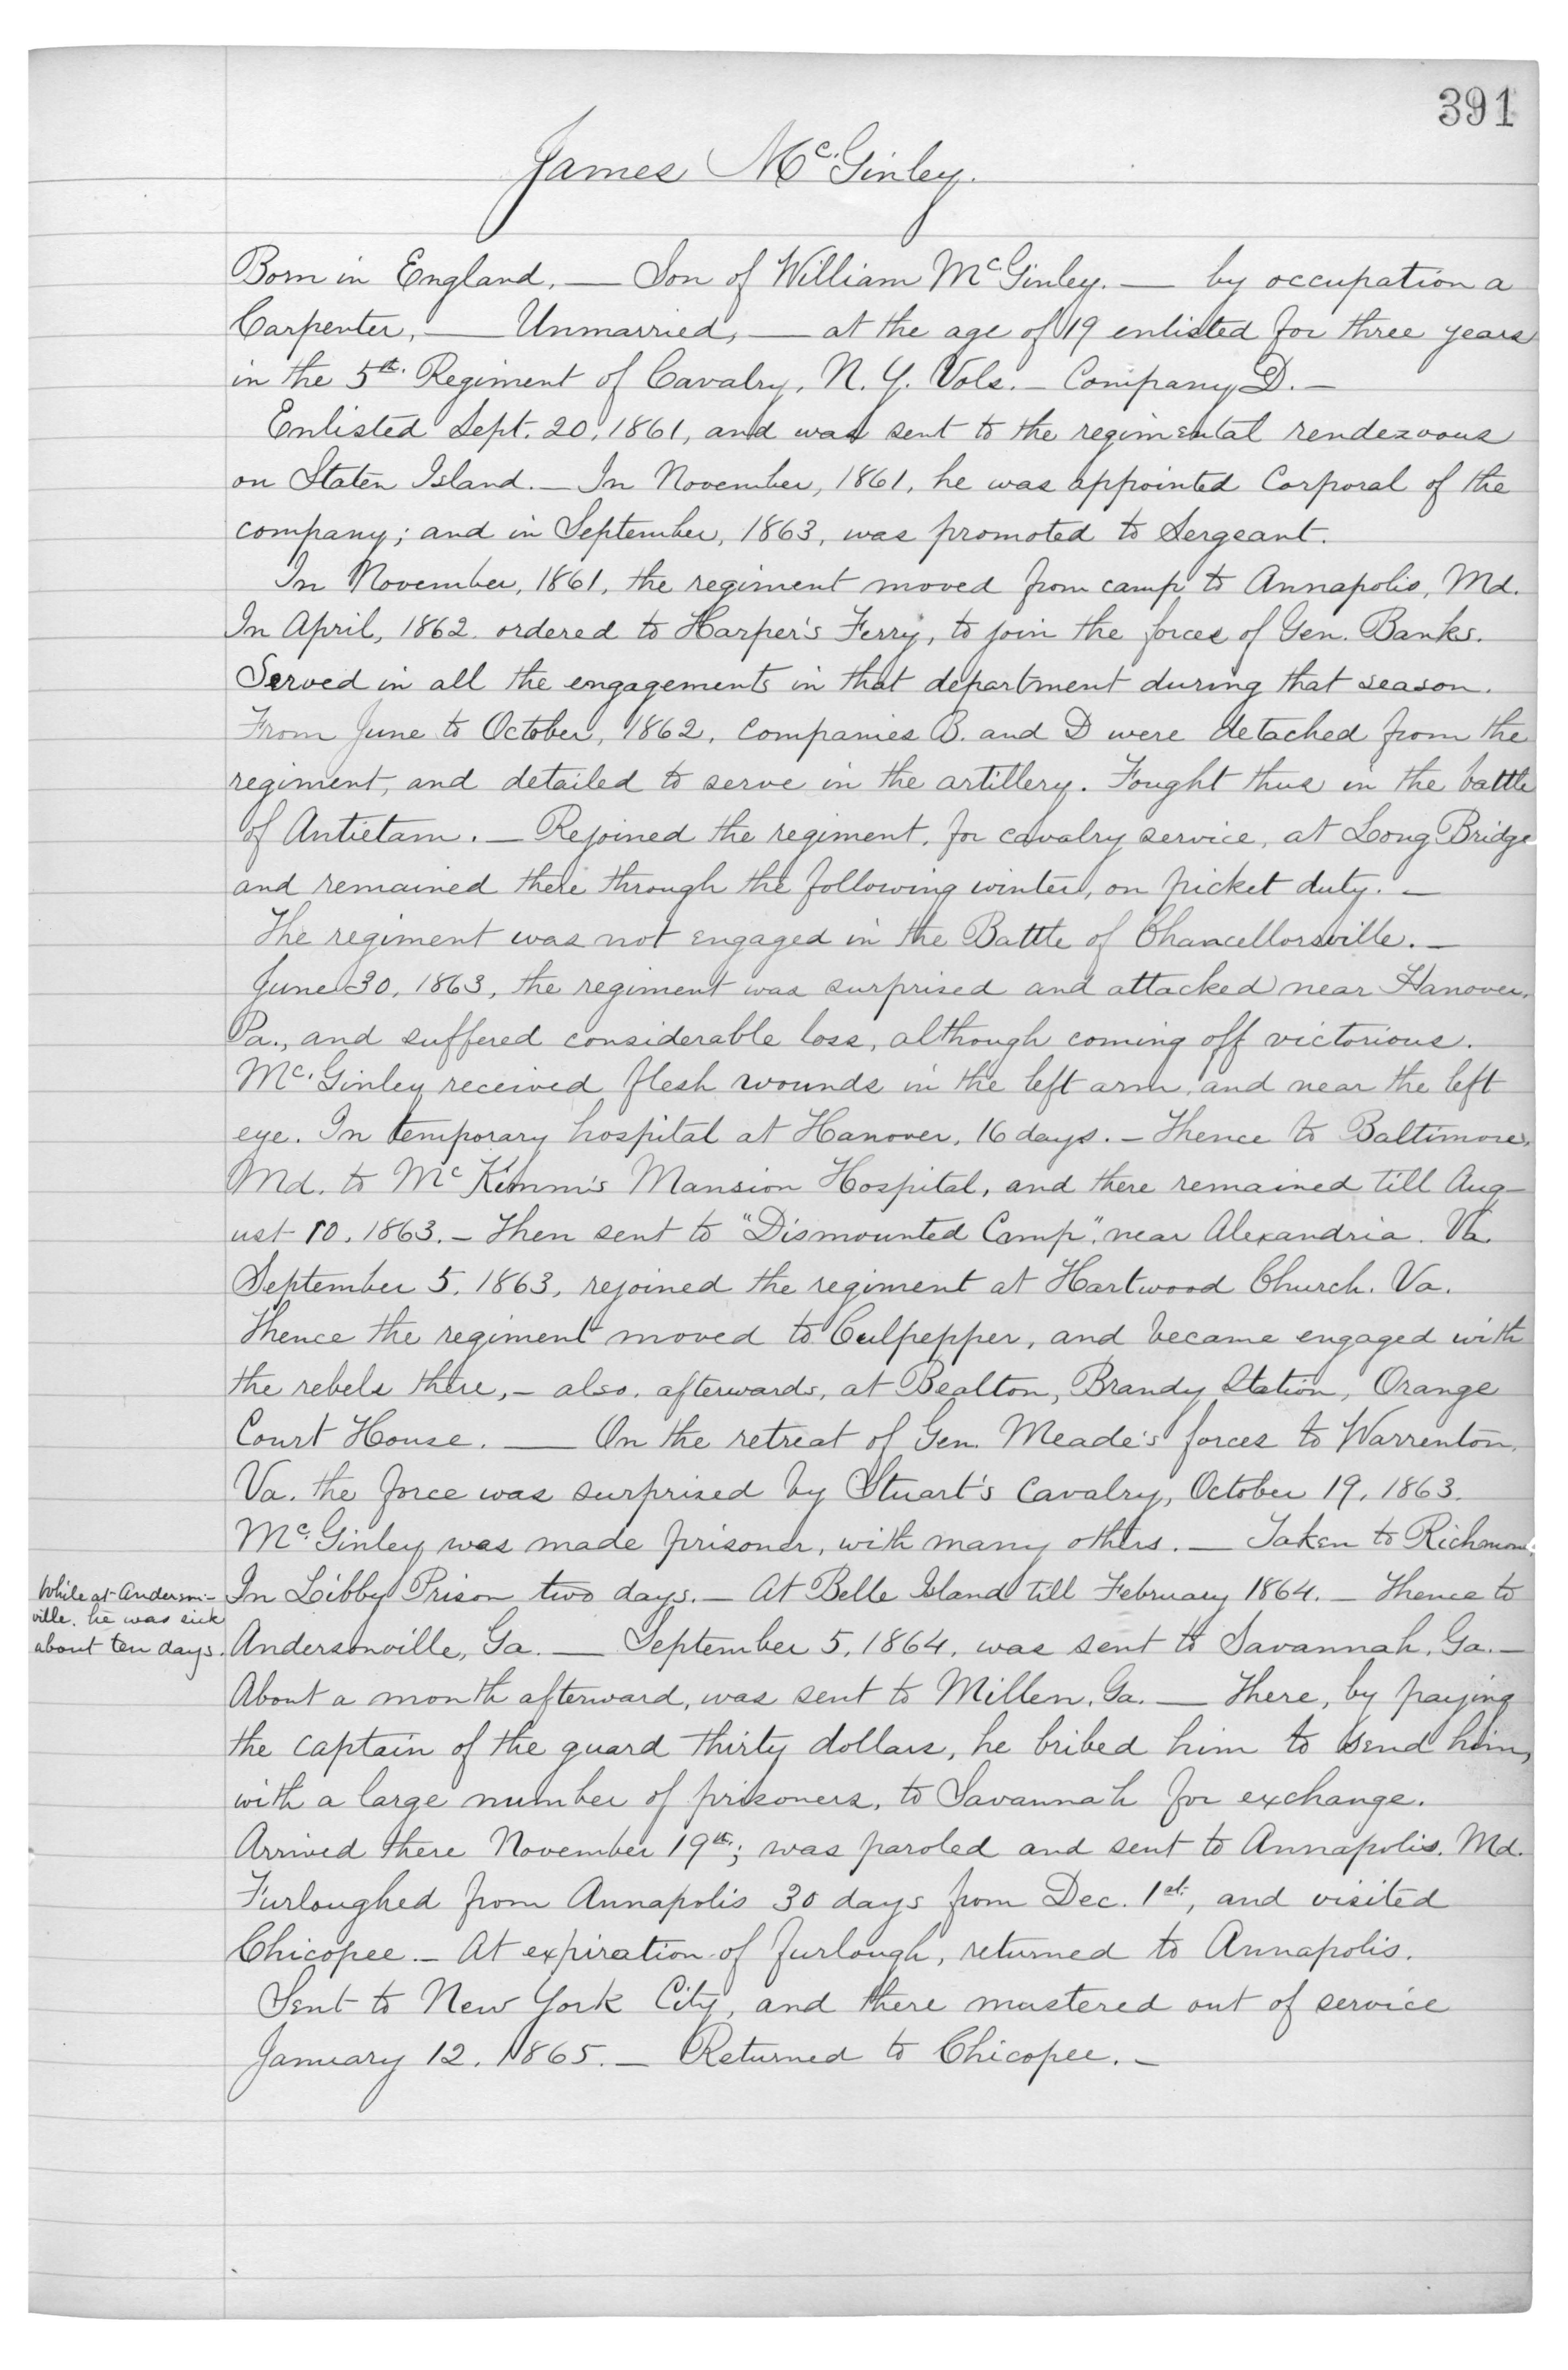 391
James McGinley.
Born in England, — Son of William McGinley. — by occupation a
Carpenter, — Unmarried, — at the age of 19 enlisted for three years
in the 5th. Regiment of Cavalry, N. Y. Vols. — Company D. —
Enlisted Sept. 20, 1861, and was sent to the regimental rendezvous
on Staten Island. — In November, 1861, he was appointed Corporal of the
company; and in September, 1863, was promoted to Sergeant.
In November, 1861, the regiment moved from camp to Annapolis, Md.
In April, 1862. ordered to Harper's Ferry, to join the forces of Gen. Banks.
Served in all the engagements in that department during that season.
From June to October, 1862, Companies B. and D were detached from the
regiment, and detailed to serve in the artillery. Fought thus in the battle
of Antietam. — Rejoined the regiment, for cavalry service, at Long Bridge
and remained there through the following winter, on picket duty. —
The regiment was not engaged in the Battle of Chancellorsville. —
June 30, 1863, the regiment was surprised and attacked near Hanover,
Pa., and suffered considerable loss, although coming off victorious.
McGinley received flesh wounds in the left arm, and near the left
eye. In temporary hospital at Hanover, 16 days. — Thence to Baltimore,
Md. to McKimm's Mansion Hospital, and there remained till Aug-
ust 10, 1863. — Then sent to "Dismounted Camp", near Alexandria. Va.
September 5, 1863, rejoined the regiment at Hartwood Church. Va.
Thence the regiment moved to Culpepper, and became engaged with
the rebels there, — also, afterwards, at Bealton, Brandy Station, Orange
Court House. — On the retreat of Gen. Meade's forces to Warrenton,
Va. the force was surprised by Stuart's Cavalry, October 19, 1863.
McGinley was made prisoner, with many others. — Taken to Richmond.
In Libby Prison two days. — At Belle Island till February 1864. — Thence to
While at Anderson-
ville, he was sick
about ten days.
Andersonville, Ga. — September 5, 1864, was sent to Savannah, Ga. —
About a month afterward, was sent to Millen, Ga. — There, by paying
the captain of the guard thirty dollars, he bribed him to send him,
with a large number of prisoners, to Savannah for exchange.
Arrived there November 19th; was paroled and sent to Annapolis. Md.
Furloughed from Annapolis 30 days from Dec. 1st, and visited
Chicopee. — At expiration of furlough, returned to Annapolis.
Sent to New York City, and there mustered out of service
January 12, 1865. — Returned to Chicopee. —